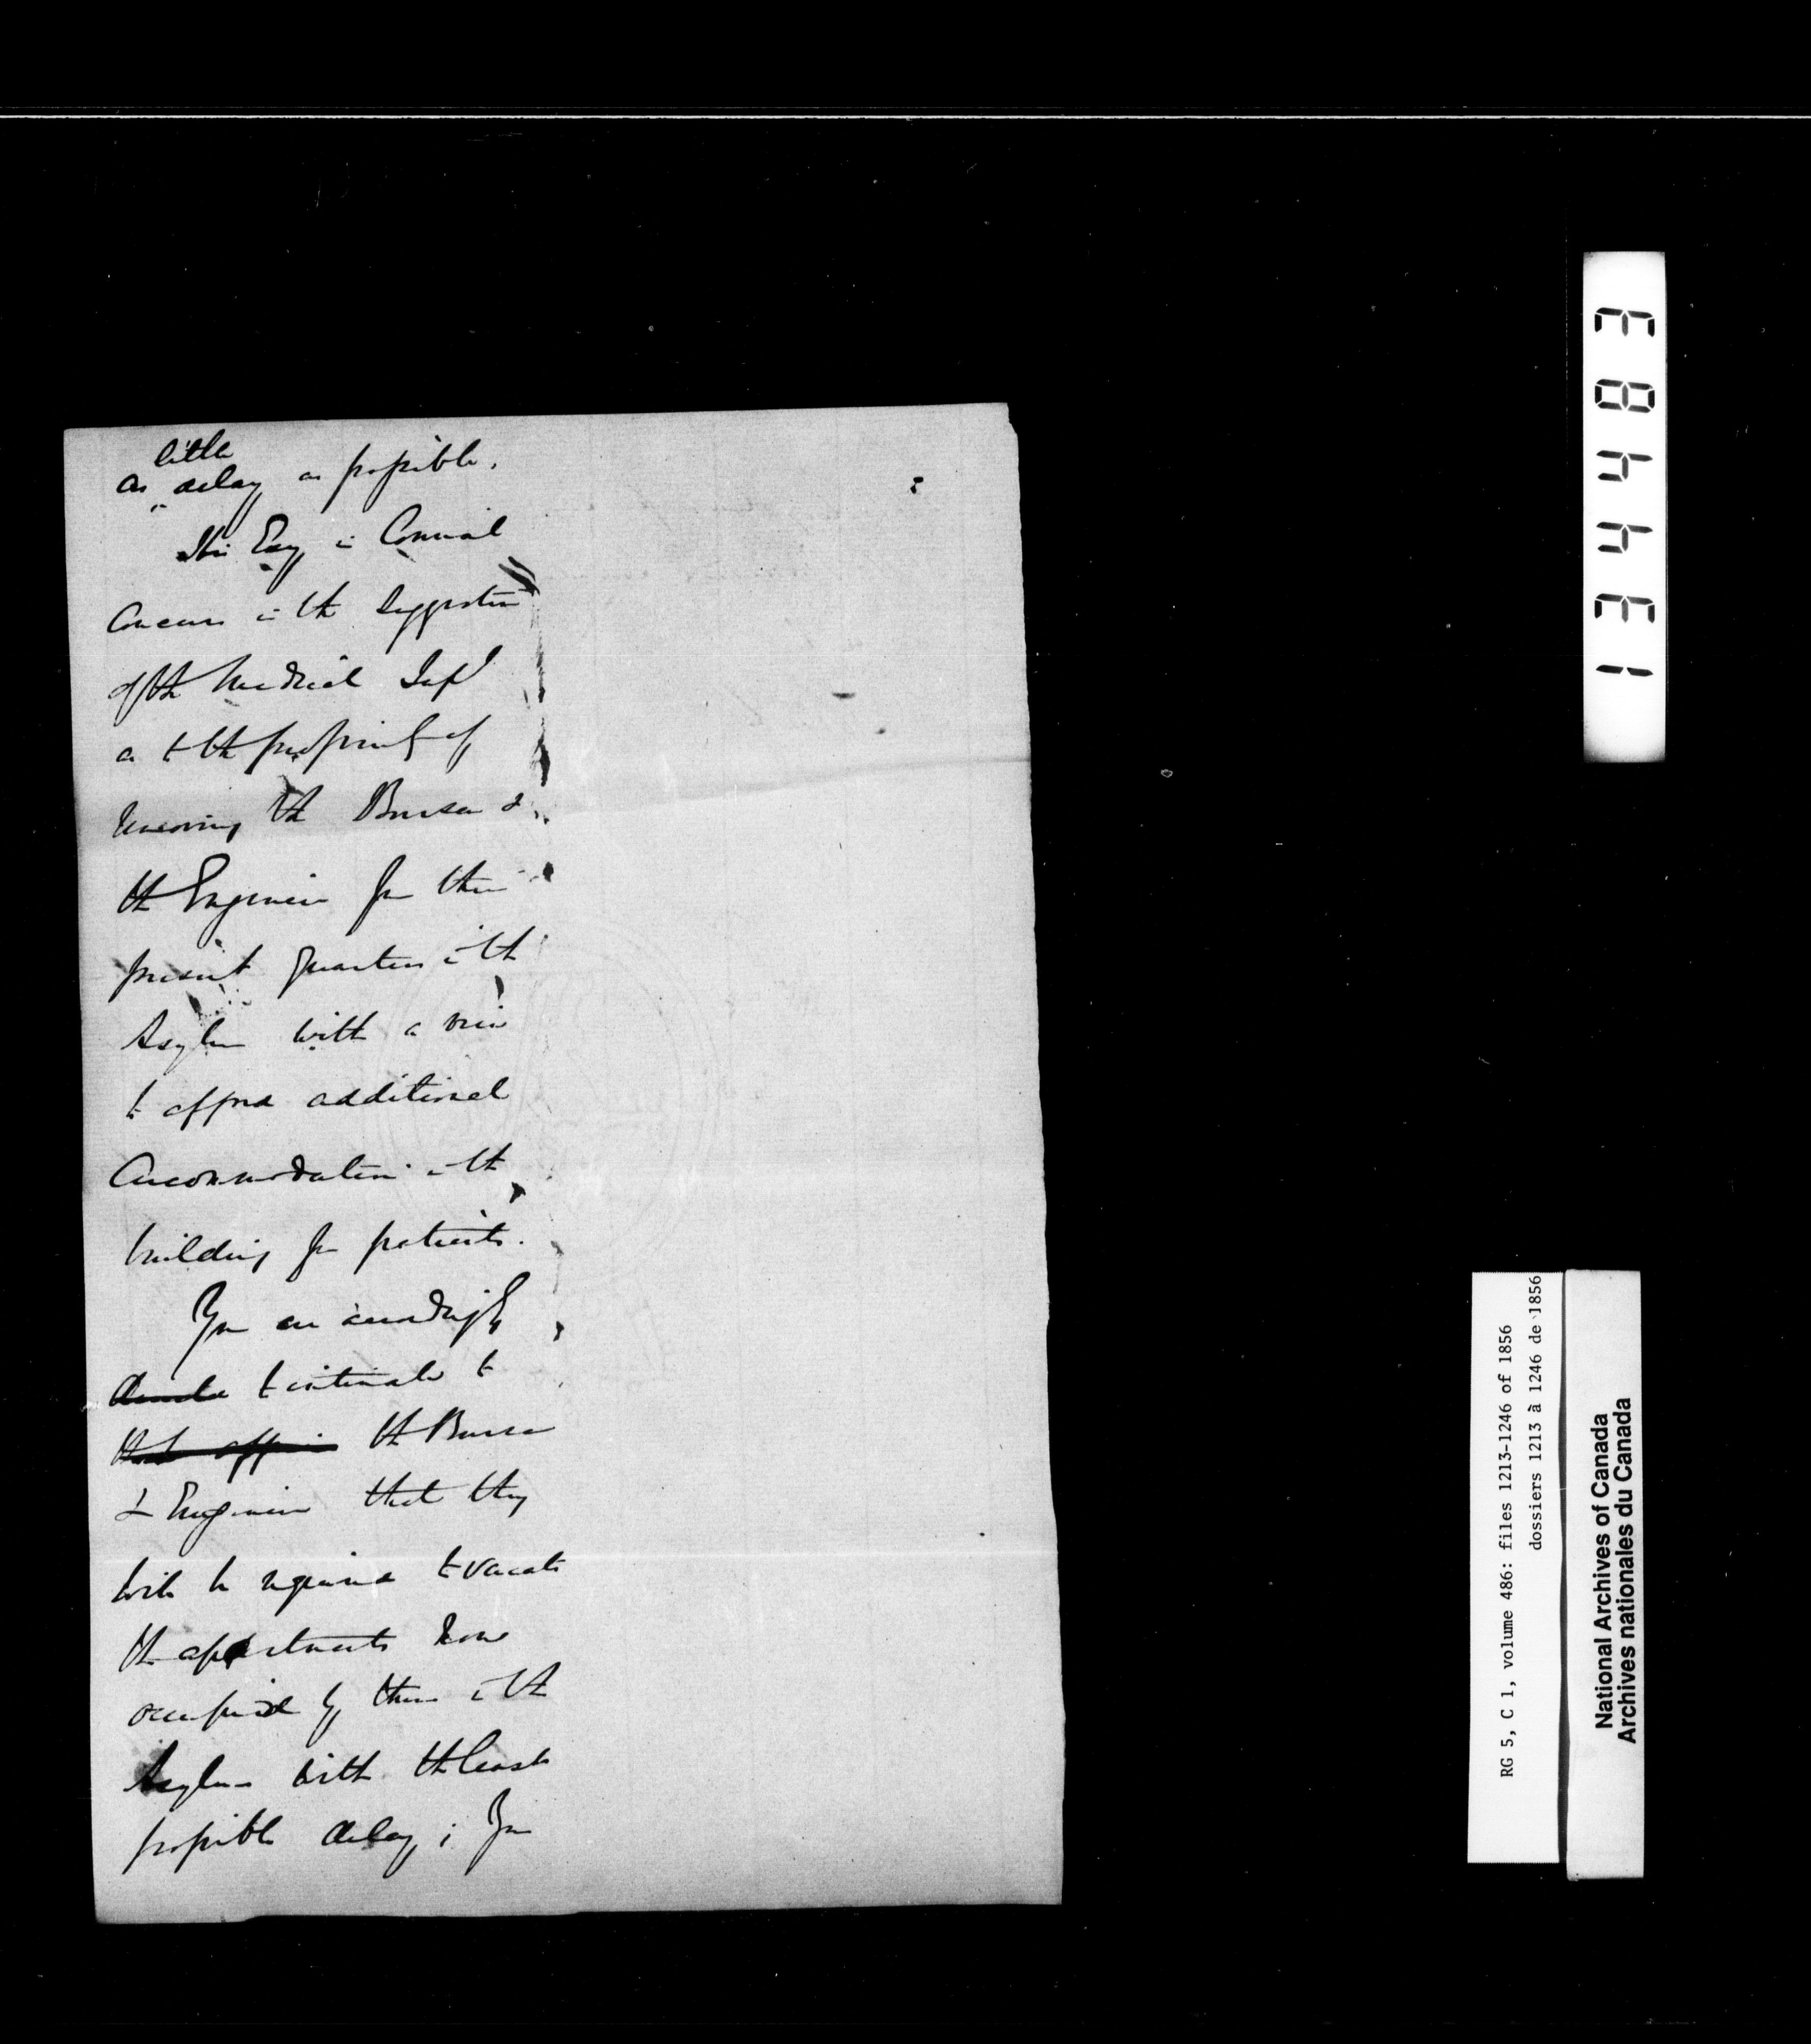 little
as delay as possible.
His Excy in Council
concurs in the suggestion
of the Medical Supt
as to the propriety of
removing the Bursar &
the Engineer from their
present quarters in the
Asylum with a view
to afford additional
accommodation in the
building for patients.
You are accordingly
to intimate to
the Bursar
& Engineer that they
will be required to vacate
the apartments now
occupied by them in the
Asylum with the least
possible delay; You
134483
RG 5, C 1, volume 486: files 1213-1246 of 1856
dossiers 1213 à 1246 de 1856
National Archives of Canada
Archives nationales du Canada